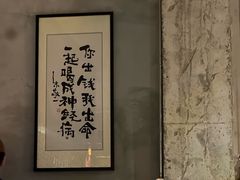 你出钱我出命
一起喝成神经病